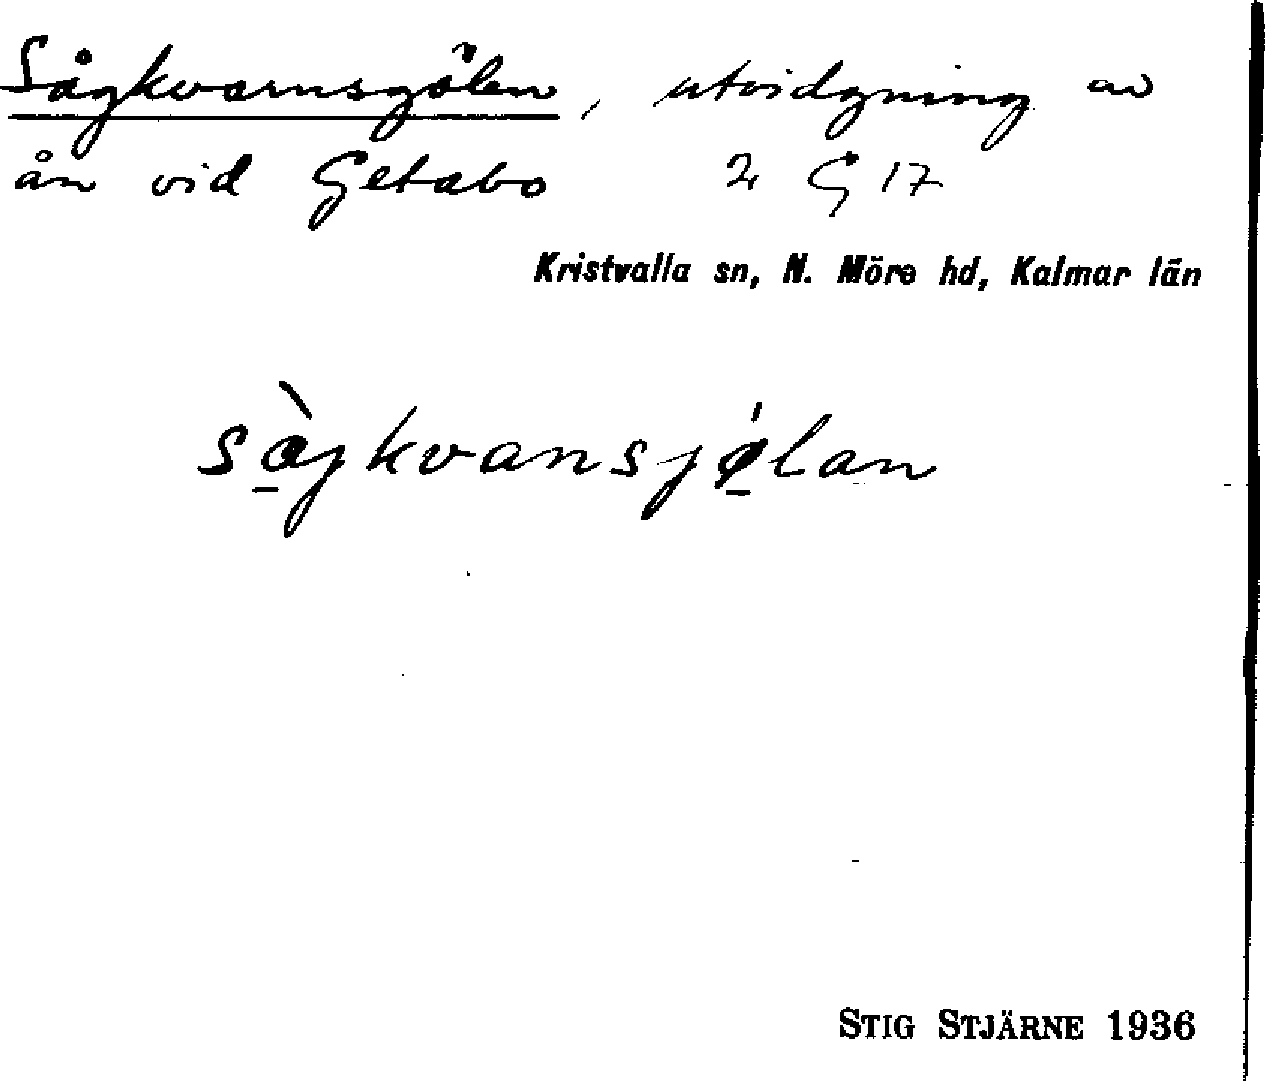 Sågkvarnsgölen, utvidgning av
ån vid Getabo 2 G 17
Kristvalla sn, N. Möre hd, Kalmar län
sò̱gkvansjǿ̱lan
STIG STJÄRNE 1936